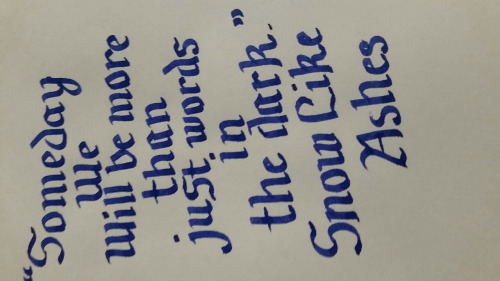 “Someday
We
Will be more
than
just words
in
the dark.”
Snow Like
Ashes